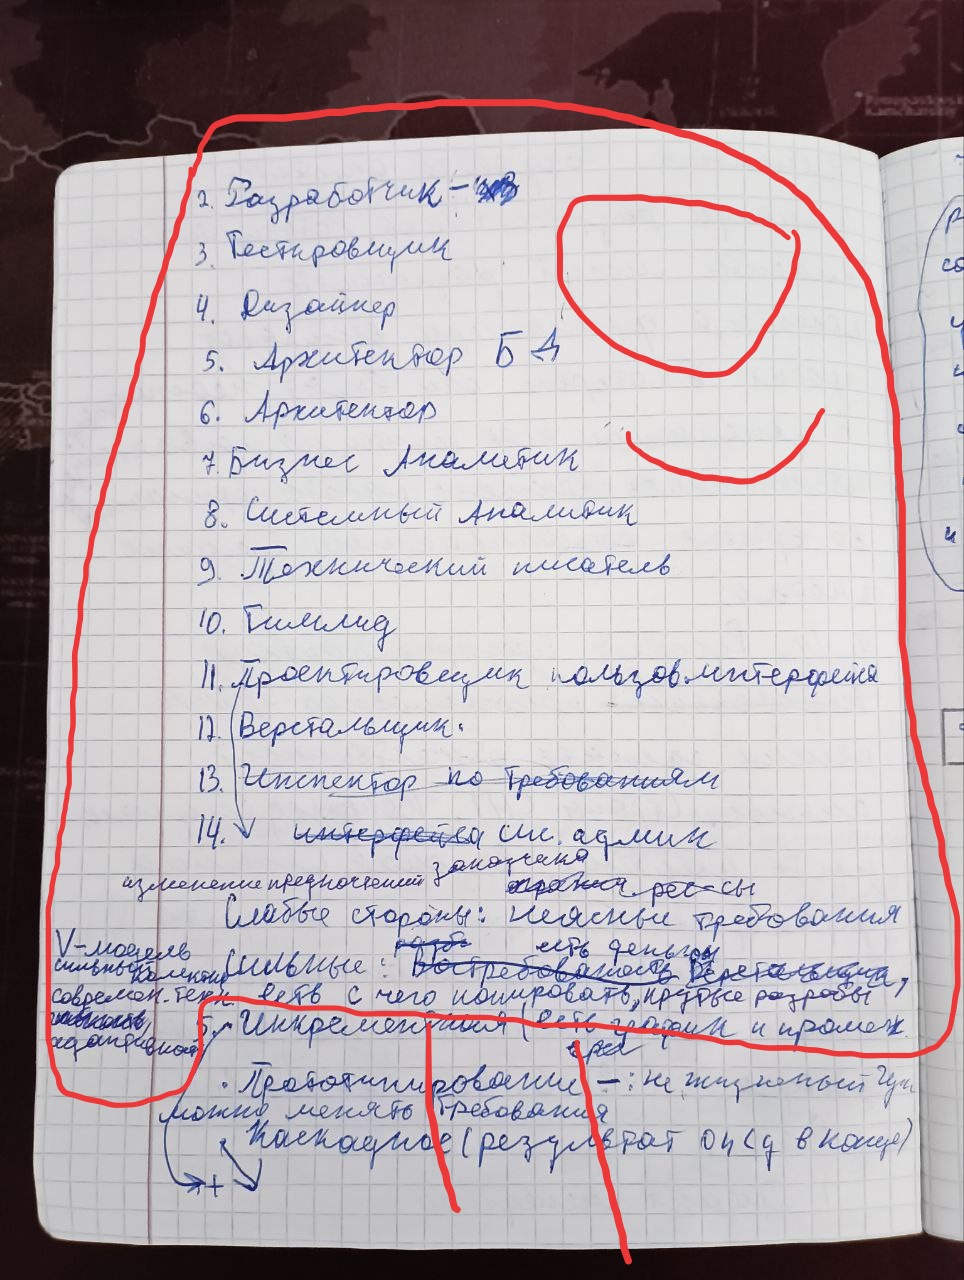 2. Разработчик -
3. Тестировщик
4. Дизайнер
5. Архитектор БД
6. Архитектор
7. Бизнес Аналитик
8. Системный Аналитик
9. Технический писатель
10. Тимлид
11. Проектировщик пользов. интерфейса
12. Верстальщик.
13. Инспектор по требованиям
14. интерфейса сис. админ
изменение предпочтений заказчика
рес-сы
Слабые стороны: неясные требования
разб есть деньги
Сильные: Востребованность Верстальщика,
V-модель
сильный
современ. техн.
адаптивной
есть с чего копировать, крутые разрабы
5. Инкрементная (есть график и промеж
вре
· Прототипирование - : не жизненный
можно менять требования
Каскадное (результат оц в конце)
+